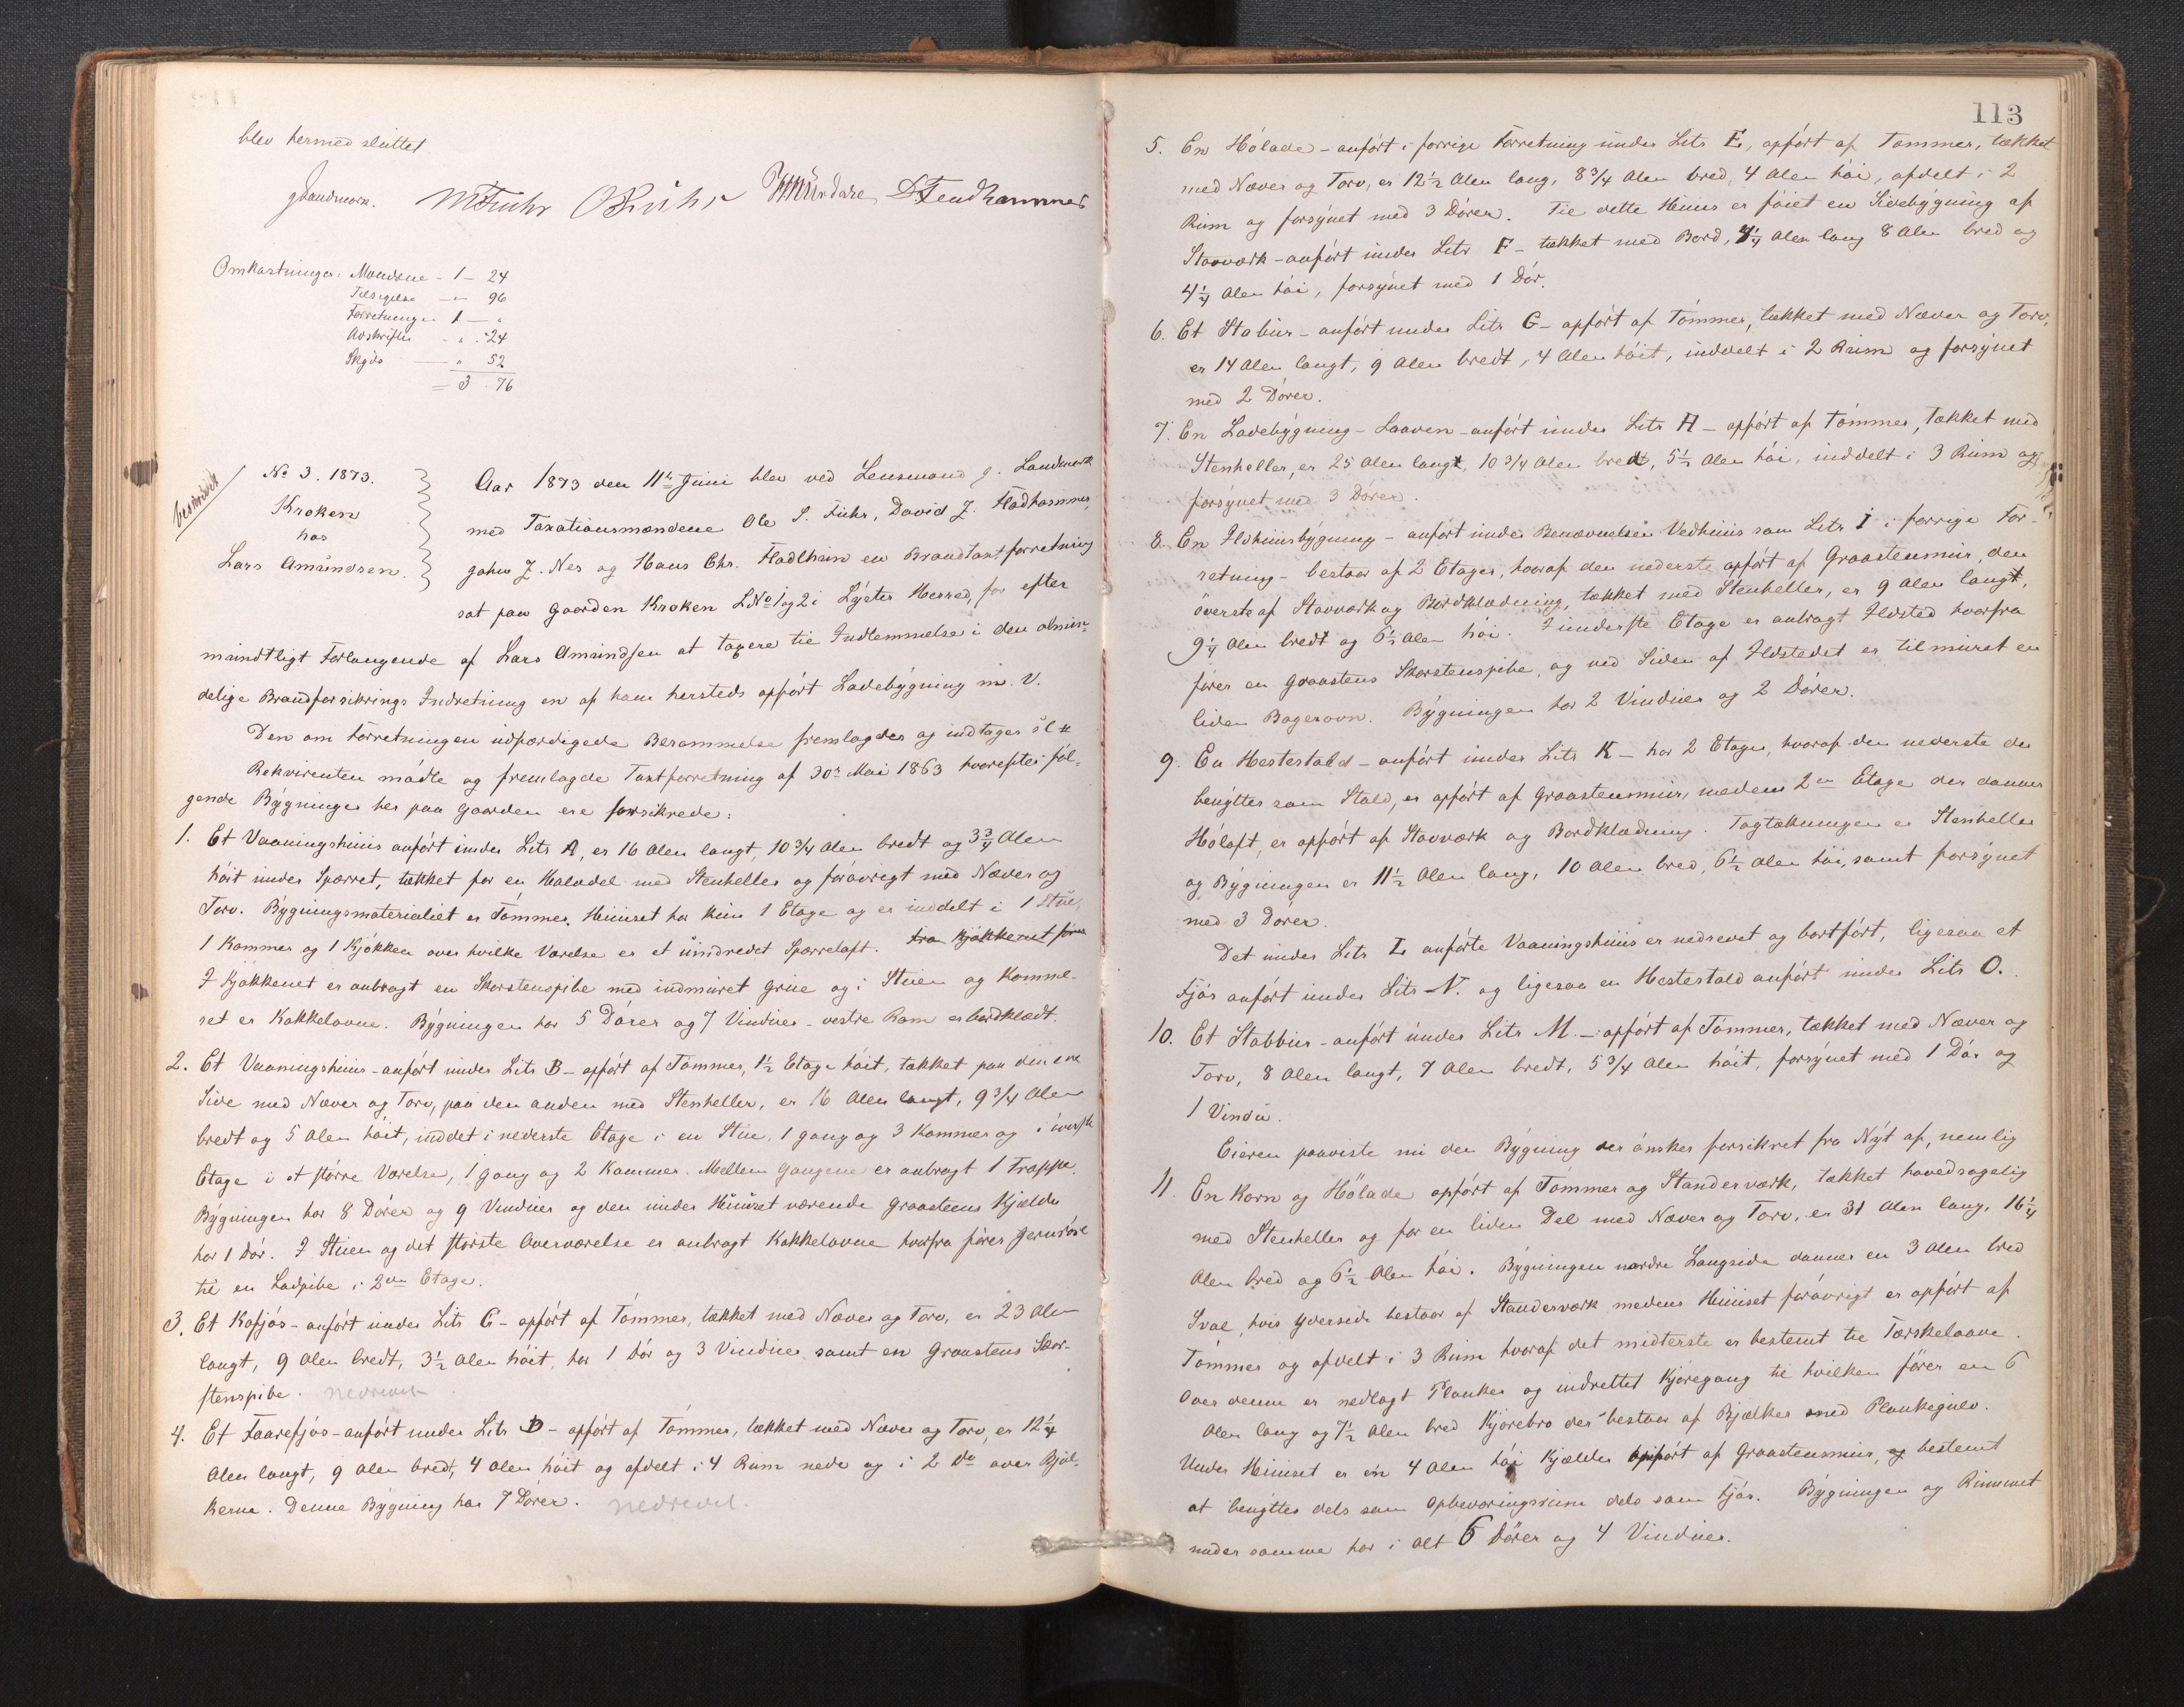 blev hermed sluttet
M Fuhr
Omkostninger: Mændene - 1 - 24
Tilsigelse - " 96
Forretningen 1 - "
Avskrifter - " - 24
Skyds - " 52
= 3 . 76
beskrevet
No 3. 1873.
Kroken
hos
Lars Amundsen.
Aar 1873 den 11te Juni blev ved Lensmand J. Landmark
med Taxationsmændene Ole S. Fuhr, David J. Fladhammer,
John J. Nes og Hans Chr. Fladheim en Brandtaxtforretning
sat paa Gaarden Kroken LNo 1 og 2 i Lyster Herred, for efter
mundtligt Forlangende af Lars Amundsen at taxere til Indlemmelse i den almin-
delige Brandforsikrings Indretning en af ham hersteds opført Ladebygning m. V.
Den om Forretningen udfærdigede Berammelse fremlagdes og indtages
Rekvirenten mødte og fremlagde Taxtforretning af 30te Mai 1863 hvorefter føl-
gende Bygninger her paa Gaarden ere forsikrede:
1. Et Vaaningshuus anført under Litr A, er 16 Alen langt, 10 3/4 Alen bredt og 3 3/4 Alen
høit under Sparret, tækket for en Halvdel med Stenheller og forøvrigt med Næver og
Torv. Bygningsmaterialiet er Tømmer. Huuset har kun 1 Etage og er inddelt i 1 Stue,
1 Kammer og 1 Kjøkken over hvilke Værelse er et uindredet Sparreloft. Fra Kjøkkenet fører
I Kjøkkenet er anbragt en Skorstenspibe med indmuret Grue og i Stuen og Kamme-
ret er Kakkelovne. Bygningen har 5 Dører og 7 Vinduer - vestre Ram er bordklædt.
2. Et Vaaningshuus - anført under Litr B - opført af Tømmer, 1 1/2 Etage høit, tækket paa den ene
Side med Næver og Torv, paa den anden med Stenheller, er 16 Alen langt, 9 3/4 Alen
bredt og 5 Alen høit, inddet i nederste Etage i en Stue, 1 Gang og 3 Kammer og i øverste
Etage i et større Værelse, 1 Gang og 2 Kammer. Mellem Gangene er anbragt 1 Trappe.
Bygningen har 8 Dører og 9 Vinduer og den under Huuset værende Graasteens Kjelder
har 1 Dør. I Stuen og det største Oververelse er anbragt Kakkelovne hvorfra fører Jernrør
til en Ladpibe i 2den Etage.
3. Et Kofjøs - anført under Litr C - opført af Tømmer, tækket med Næver og Torv, er 23 Alen
langt, 9 Alen bredt, 3 1/2 Alen høit, har 1 Dør og 3 Vinduer samt en Graastens Skor-
stenspibe. nedrevet
4. Et Faarefjøs - anført under Litr D - opført af Tømmer, tækket med Næver og Torv, er 12 1/4
Alen langt, 9 Alen bredt, 4 Alen høit og afdelt i 4 Rum nede og i 2 do over Bjæl-
kerne. Denne Bygning har 7 Dører. nedrevet.
113
5. En Hølade - anført i forrige Forretning under Litr E, opført af Tømmer, tækket
med Næver og Torv, er 12 1/2 Alen lang, 8 3/4 Alen bred, 4 Alen høi, afdelt i 2
Rum og forsynet med 3 Dører. Til dette Huus er føiet en Sidebygning af
Stavværk - anført under Litr F - tækket med Bord, 4 1/4 Alen lang 8 Alen bred og
4 1/4 Alen høi, forsynet med 1 Dør.
6. Et Stabur - anført under Litr G - opført af Tømmer, tækket med Næver og Torv,
er 14 Alen langt, 9 Alen bredt, 4 Alen høit, inddelt i 2 Rum og forsynet
med 2 Dører.
7. En Ladebygning - Laaven - anført under Litr H - opført af Tømmer, tækket med
Stenheller, er 25 Alen langt, 10 3/4 Alen bredt, 5 1/2 Alen høi, inddelt i 3 Rum og
forsynet med 3 Dører.
8. En Ildhuusbygning - anført under Benævnelsen Vedhuus som Litr I i forrige For-
retning - bestaar af 2 Etager, hvoraf den nederste opført af Graasteensmur, den
øverste af Stavværk og Bordklædning, tækket med Stenheller, er 9 Alen langt,
9 1/4 Alen bredt og 6 1/2 Alen høi. I underste Etage er anbragt Ildsted hvorfra
fører en Graastens Skorstenspibe, og ved Siden af Ildstedet er tilmuret en
liden Bagerovn. Bygningen har 2 Vinduer og 2 Dører.
9. En Hestestald - anført under Litr K - har 2 Etager, hvoraf den nederste der
benyttes som Stald, er opført af Graasteensmur, medens 2en Etage der danner
Høloft, er opført af Stavværk og Bordklædning. Tagtækningen er Stenheller
og Bygningen er 11 1/2 Alen lang, 10 Alen bred, 6 1/2 Alen høi, samt forsynet
med 3 Dører.
Det under Litr L anførte Vaaningshuus er nedrevet og bortført, ligesaa et
Fjøs anført under Litr N. og ligesaa en Hestestald anført under Litr O.
10. Et Stabbur - anført under Litr M. - opført af Tømmer, tækket med Næver og
Torv, 8 Alen langt, 7 Alen bredt, 5 3/4 Alen høit, forsynet med 1 Dør og
1 Vindu.
Eieren paaviste nu den Bygning der ønskes forsikret fra Nyt af, nemlig
11. En Korn og Hølade opført af Tømmer og Standerværk, tækket hovedsagelig
med Stenheller og for en liden Del med Næver og Torv, er 31 Alen lang, 16 1/4
Alen bred og 6 1/2 Alen høi. Bygningen nordre Langside danner en 3 Alen bred
Sval, hvis Yderside bestaar af Standerværk medens Huuset forøvrigt er opført af
Tømmer og afdelt i 3 Rum hvoraf det midterste er bestemt til Tærskelaave.
Over denne er nedlagt Planker og indrettet Kjøregang til hvilken fører en 6
Alen lang og 7 1/2 Alen bred Kjørebro der bestaar af Bjælker med Plankegulv.
Under Huuset er en 4 Alen høi Kjælder opført af Graasteensmur, og bestemt
at benyttes dels som Opbevaringsrum dels som Fjøs. Bygningen og Rummet
under samme har i Alt 6 Dører og 4 Vinduer.